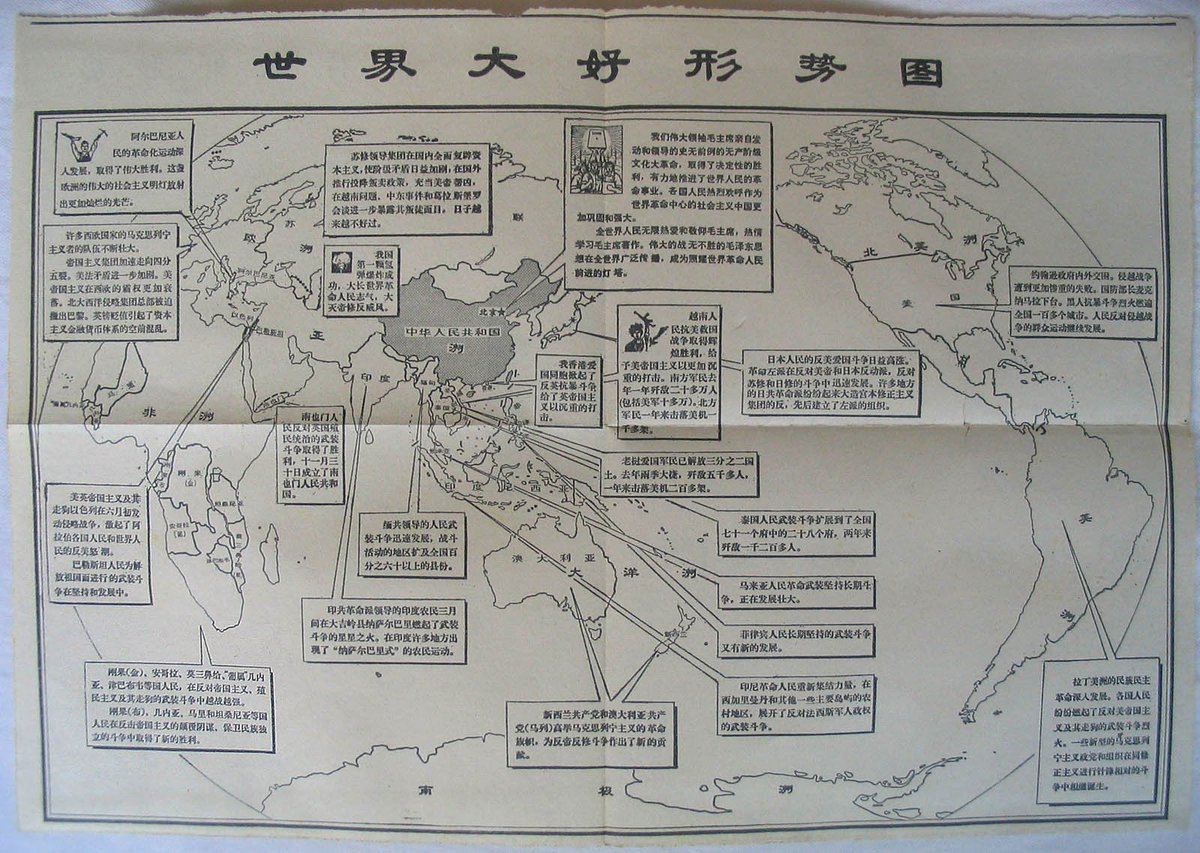 世界大好形势图
阿尔巴尼亚人
民的革命化运动深
入发展，取得了伟大胜利。这盏
欧洲的伟大的社会主义明灯放射
出更加灿烂的光芒。
许多西欧国家的马克思列宁
主义者的队伍不断壮大。
帝国主义集团加速走向四分
五裂。美法矛盾进一步加剧。美
帝国主义在西欧的霸权更加衰
落。北大西洋侵略集团总部被迫
撤出巴黎。英镑贬值引起了资本
主义金融货币体系的空前混乱。
苏修领导集团在国内全面复辟资
本主义，使阶级矛盾日益加剧，在国外
推行投降叛卖政策，充当美帝帮凶，
在越南问题、中东事件和葛拉斯堡罗
会谈进一步暴露其叛徒面目，日子越
来越不好过。
我国
第一颗氢
弹爆炸成
功，大长世界革
命人民志气，大
灭帝修反威风。
我们伟大领袖毛主席亲自发
动和领导的史无前例的无产阶级
文化大革命，取得了决定性的胜
利，有力地推进了世界人民的革
命事业。各国人民热烈欢呼作为
世界革命中心的社会主义中国更
加巩固和强大。
全世界人民无限热爱和敬仰毛主席，热情
学习毛主席著作。伟大的战无不胜的毛泽东思
想在全世界广泛传播，成为照耀世界革命人民
前进的灯塔。
约翰逊政府内外交困。侵越战争
遭到更加惨重的失败。国防部长麦克
纳马拉下台。黑人抗暴斗争烈火燃遍
全国一百多个城市。人民反对侵越战
争的群众运动继续发展。
越南人
民抗美救国
战争取得辉
煌胜利，给
予美帝国主义以更加沉
重的打击。南方军民去
年一年歼敌二十多万人
（包括美军十多万）。北方
军民一年来击落美机一
千多架。
日本人民的反美爱国斗争日益高涨。
革命左派在反对美帝和日本反动派，反对
苏修和日修的斗争中迅速发展。许多地方
的日共革命派纷纷起来大造宫本修正主义
集团的反，先后建立了左派的组织。
我香港爱
国同胞掀起了
反英抗暴斗争
给了英帝国主
义以沉重的打
击。
南也门人
民反对英国殖
民统治的武装
斗争取得了胜
利，十一月三
十日成立了南
也门人民共和
国。
老挝爱国军民已解放三分之二国
土。去年雨季大捷，歼敌五千多人，
一年来击落美机二百多架。
美英帝国主义及其
走狗以色列在六月初发
动侵略战争，激起了阿
拉伯各国人民和世界人
民的反美怒潮。
巴勒斯坦人民为解
放祖国而进行的武装斗
争在坚持和发展中。
缅共领导的人民武
装斗争迅速发展，战斗
活动的地区扩及全国百
分之六十以上的县份。
泰国人民武装斗争扩展到了全国
七十一个府中的二十八个府，两年来
歼敌一千二百多人。
马来亚人民革命武装坚持长期斗
争，正在发展壮大。
菲律宾人民长期坚持的武装斗争
又有新的发展。
印共革命派领导的印度农民三月
间在大吉岭县纳萨尔巴里燃起了武装
斗争的星星之火。在印度许多地方出
现了“纳萨尔巴里式”的农民运动。
印尼革命人民重新集结力量，在
西加里曼丹和其他一些主要岛屿的农
村地区，展开了反对法西斯军人政权
的武装斗争。
刚果（金）、安哥拉、莫三鼻给、“葡属”几内
亚、津巴布韦等国人民，在反对帝国主义、殖
民主义及其走狗的武装斗争中越战越强。
刚果（布）、几内亚、马里和坦桑尼亚等国
人民在反击帝国主义的颠覆阴谋、保卫民族独
立的斗争中取得了新的胜利。
新西兰共产党和澳大利亚共产
党（马列）高举马克思列宁主义的革命
旗帜，为反帝反修斗争作出了新的贡
献。
拉丁美洲的民族民主
革命深入发展。各国人民
纷纷燃起了反对美帝国主
义及其走狗的武装斗争烈
火。一些新型的马克思列
宁主义政党和组织在同修
正主义进行针锋相对的斗
争中相继诞生。
欧洲
苏联
亚洲
中华人民共和国
北京
阿尔巴尼亚
以色列
巴勒斯坦
印度
缅甸
非洲
刚果
（金）
安哥拉
印度尼西亚
澳大利亚
大洋洲
北美洲
美国
南美洲
南极洲